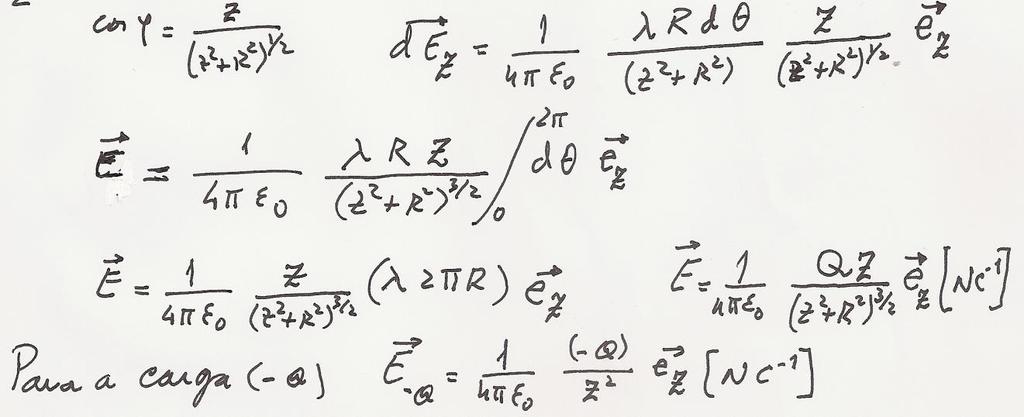 cos φ = z/(z²+R²)^1/2   dE⃗_z = 1/(4πε₀) λRdθ/(z²+R²) z/(z²+R²)^1/2 e⃗_z
E⃗ = 1/(4πε₀) λRz/(z²+R²)^3/2 ∫₀^2π dθ e⃗_z
E⃗ = 1/(4πε₀) z/(z²+R²)^3/2 (λ2πR) e⃗_z   E⃗ = 1/(4πε₀) Qz/(z²+R²)^3/2 e⃗_z [NC⁻¹]
Para a carga (-Q)   E⃗_-Q = 1/(4πε₀) (-Q)/z² e⃗_z [NC⁻¹]